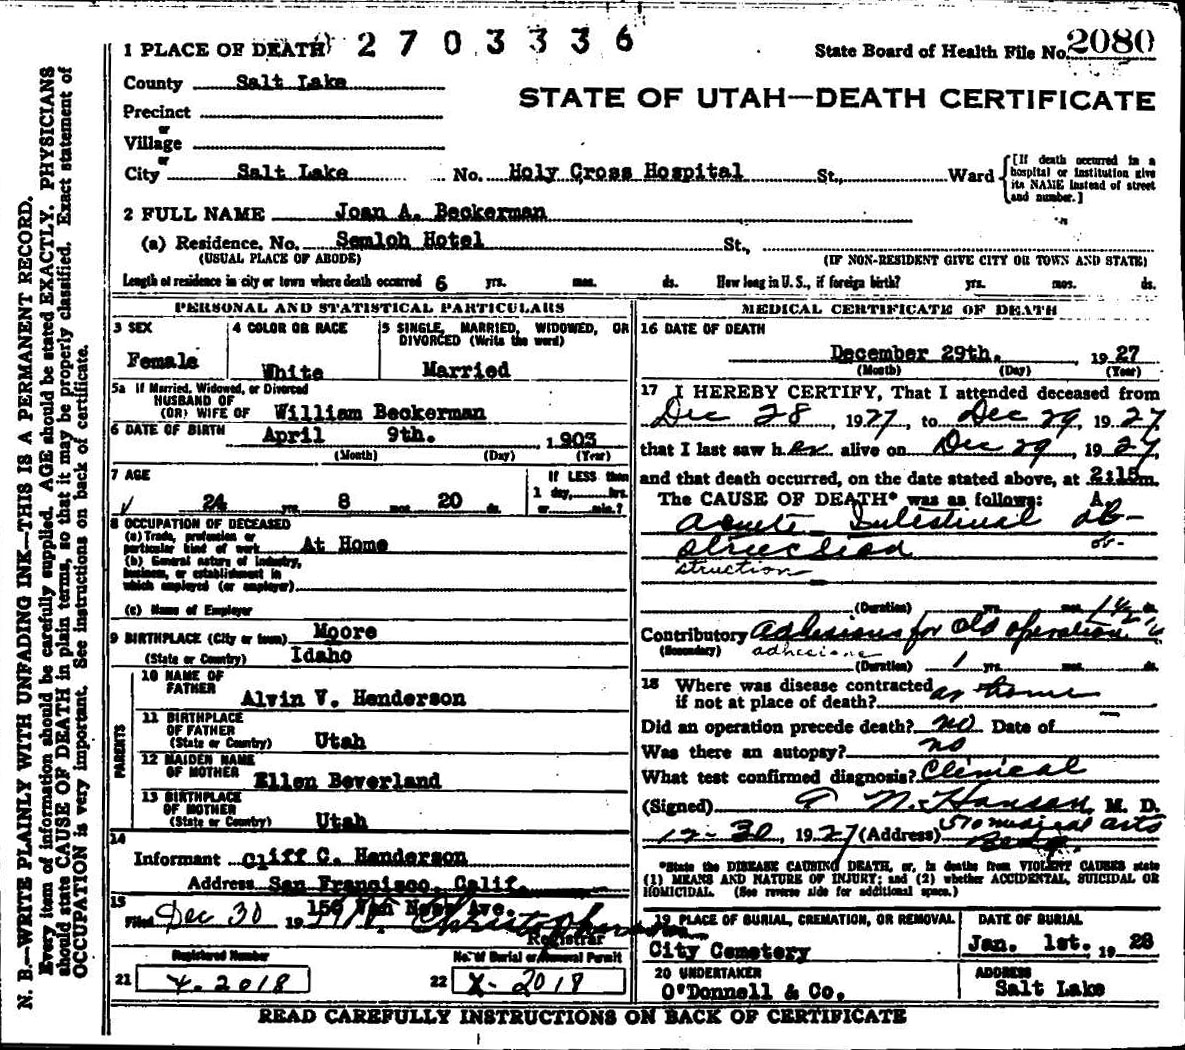 1 PLACE OF DEATH 2703336 State Board of Health File No. 2080
County Salt Lake
STATE OF UTAH—DEATH CERTIFICATE
Precinct
or
Village
or
City Salt Lake No. Holy Cross Hospital St., Ward [If death occurred in a hospital or institution give its NAME instead of street and number.]
2 FULL NAME Joan A. Beckerman
(a) Residence, No. Semloh Hotel St.,
(USUAL PLACE OF ABODE) (IF NON-RESIDENT GIVE CITY OR TOWN AND STATE)
Length of residence in city or town where death occurred 6 yrs. mos. ds. How long in U.S., if foreign birth? yrs. mos. ds.
PERSONAL AND STATISTICAL PARTICULARS
3 SEX
Female
4 COLOR OR RACE
White
5 SINGLE, MARRIED, WIDOWED, OR
DIVORCED (Write the word)
Married
5a If Married, Widowed, or Divorced
HUSBAND OF
(OR) WIFE OF William Beckerman
6 DATE OF BIRTH April 9th. 1903
(Month) (Day) (Year)
7 AGE
24 yrs. 8 mos. 20 ds.
If LESS than
1 day, hrs.
or min.?
8 OCCUPATION OF DECEASED
(a) Trade, profession or
particular kind of work At Home
(b) General nature of industry,
business, or establishment in
which employed (or employer)
(c) Name of Employer
9 BIRTHPLACE (City or town) Moore
(State or Country) Idaho
PARENTS
10 NAME OF
FATHER Alvin V. Henderson
11 BIRTHPLACE
OF FATHER
(State or Country) Utah
12 MAIDEN NAME
OF MOTHER Ellen Beverland
13 BIRTHPLACE
OF MOTHER
(State or Country) Utah
14
Informant Cliff C. Henderson
Address San Francisco, Calif.
150 Van Ness Ave.
15
Filed Dec 30 1927
Registrar
Registered Number
21 X-2018
No. of Burial or Removal Permit
22 X-2018
MEDICAL CERTIFICATE OF DEATH
16 DATE OF DEATH
December 29th. 1927
(Month) (Day) (Year)
17 I HEREBY CERTIFY, That I attended deceased from
Dec 28, 1927, to Dec 29, 1927
that I last saw her alive on Dec 29, 1927,
and that death occurred, on the date stated above, at 2:15m.
The CAUSE OF DEATH* was as follows: A.
Acute Intestinal ob-
struction ob-
struction
(Duration) yrs. mos. 1½ ds.
Contributory Adhesions for old operation
(Secondary) adhecions
(Duration) 1 yrs. mos. ds.
18 Where was disease contracted
if not at place of death? at home
Did an operation precede death? no Date of —
Was there an autopsy? no
What test confirmed diagnosis? Clinical
(Signed) N. Hanson, M. D.
12-30, 1927 (Address) 510 medical arts
Bldg.
*State the DISEASE CAUSING DEATH, or, in deaths from VIOLENT CAUSES state
(1) MEANS AND NATURE OF INJURY; and (2) whether ACCIDENTAL, SUICIDAL OR
HOMICIDAL. (See reverse side for additional space.)
19 PLACE OF BURIAL, CREMATION, OR REMOVAL
City Cemetery
DATE OF BURIAL
Jan. 1st. 1928
20 UNDERTAKER
O'Donnell & Co.
ADDRESS
Salt Lake
READ CAREFULLY INSTRUCTIONS ON BACK OF CERTIFICATE
N. B.—WRITE PLAINLY WITH UNFADING INK—THIS IS A PERMANENT RECORD.
Every item of information should be carefully supplied. AGE should be stated EXACTLY. PHYSICIANS
should state CAUSE OF DEATH in plain terms, so that it may be properly classified. Exact statement of
OCCUPATION is very important. See instructions on back of certificate.